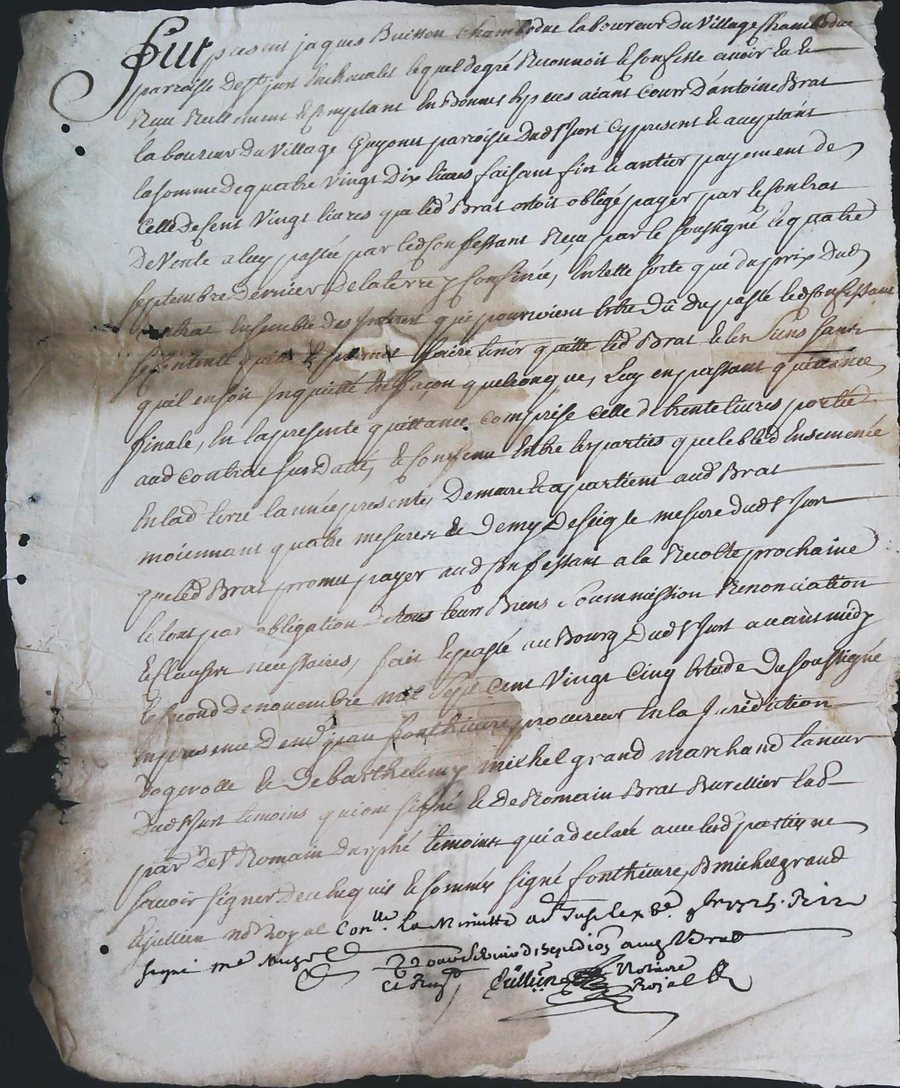 Fut present jaques Buisson Chambodut laboureur du Village Chambodut
paroisse de St just en chevalet lequel de gré Reconnoit Et Confesse avoir Eu Et
Receu Reellement et Comptant En Bonnes Especes aiant Cours d'antoine Brat
laboureur du Village Guyonet paroisse dud St just Cy present Et acceptant
la somme de quatre Vingt Dix livres faisant fin Et antier payement de
Celle de Cent Vingt livres que led Brat Estoit obligé payer par le Contrat
De Vente a luy passée par led Confessant Receu par le soussigné le quatre
septembre Dernier De la terre y Confinée, En telle sorte que du prix Dud
Contrat Ensemble des qui pourroient Estre Dü du passé led Confessant
se Contente quitte Et promet faire tenir quitte led Brat Et les siens sans
qu'il en soit Inquietté En façon quelconque, Luy en passant quittance
finale, En la presente quittance comprise Celle de trente livres portée
aud contrat susdatté, Et Convenu Entre les parties que le bled Ensemencé
En lad terre l'année presente Demeure Et apartient aud Brat
moiennant quatre mesures Et Demy De seigle mesure dud St just
que led Brat promet payer aud Confessant a la Recolte prochaine
le tout par obligation De tous leur Biens Soummission Renonciation
Et Clauses necessaires, fait Et passé au Bourg Dud St just avant midy
le second De novembre mil sept cent Vingt Cinq Etude Du soussigné
En presence De me jean fonthieure procureur En la juridiction
Et De Barthelemy michel grand marchand taneur
Dud St just temoins qui ont signé Et De Romain Brat
par De St Romain Durphé temoins qui a declaré avec lesd parties ne
savoir signer De ce Enquis Et sommés signé fonthieure, B michel grand
Et jullien nore Royal Conlle la Minutte a St just le 8e Rx 12
signé
Jullien Notaire
Royal